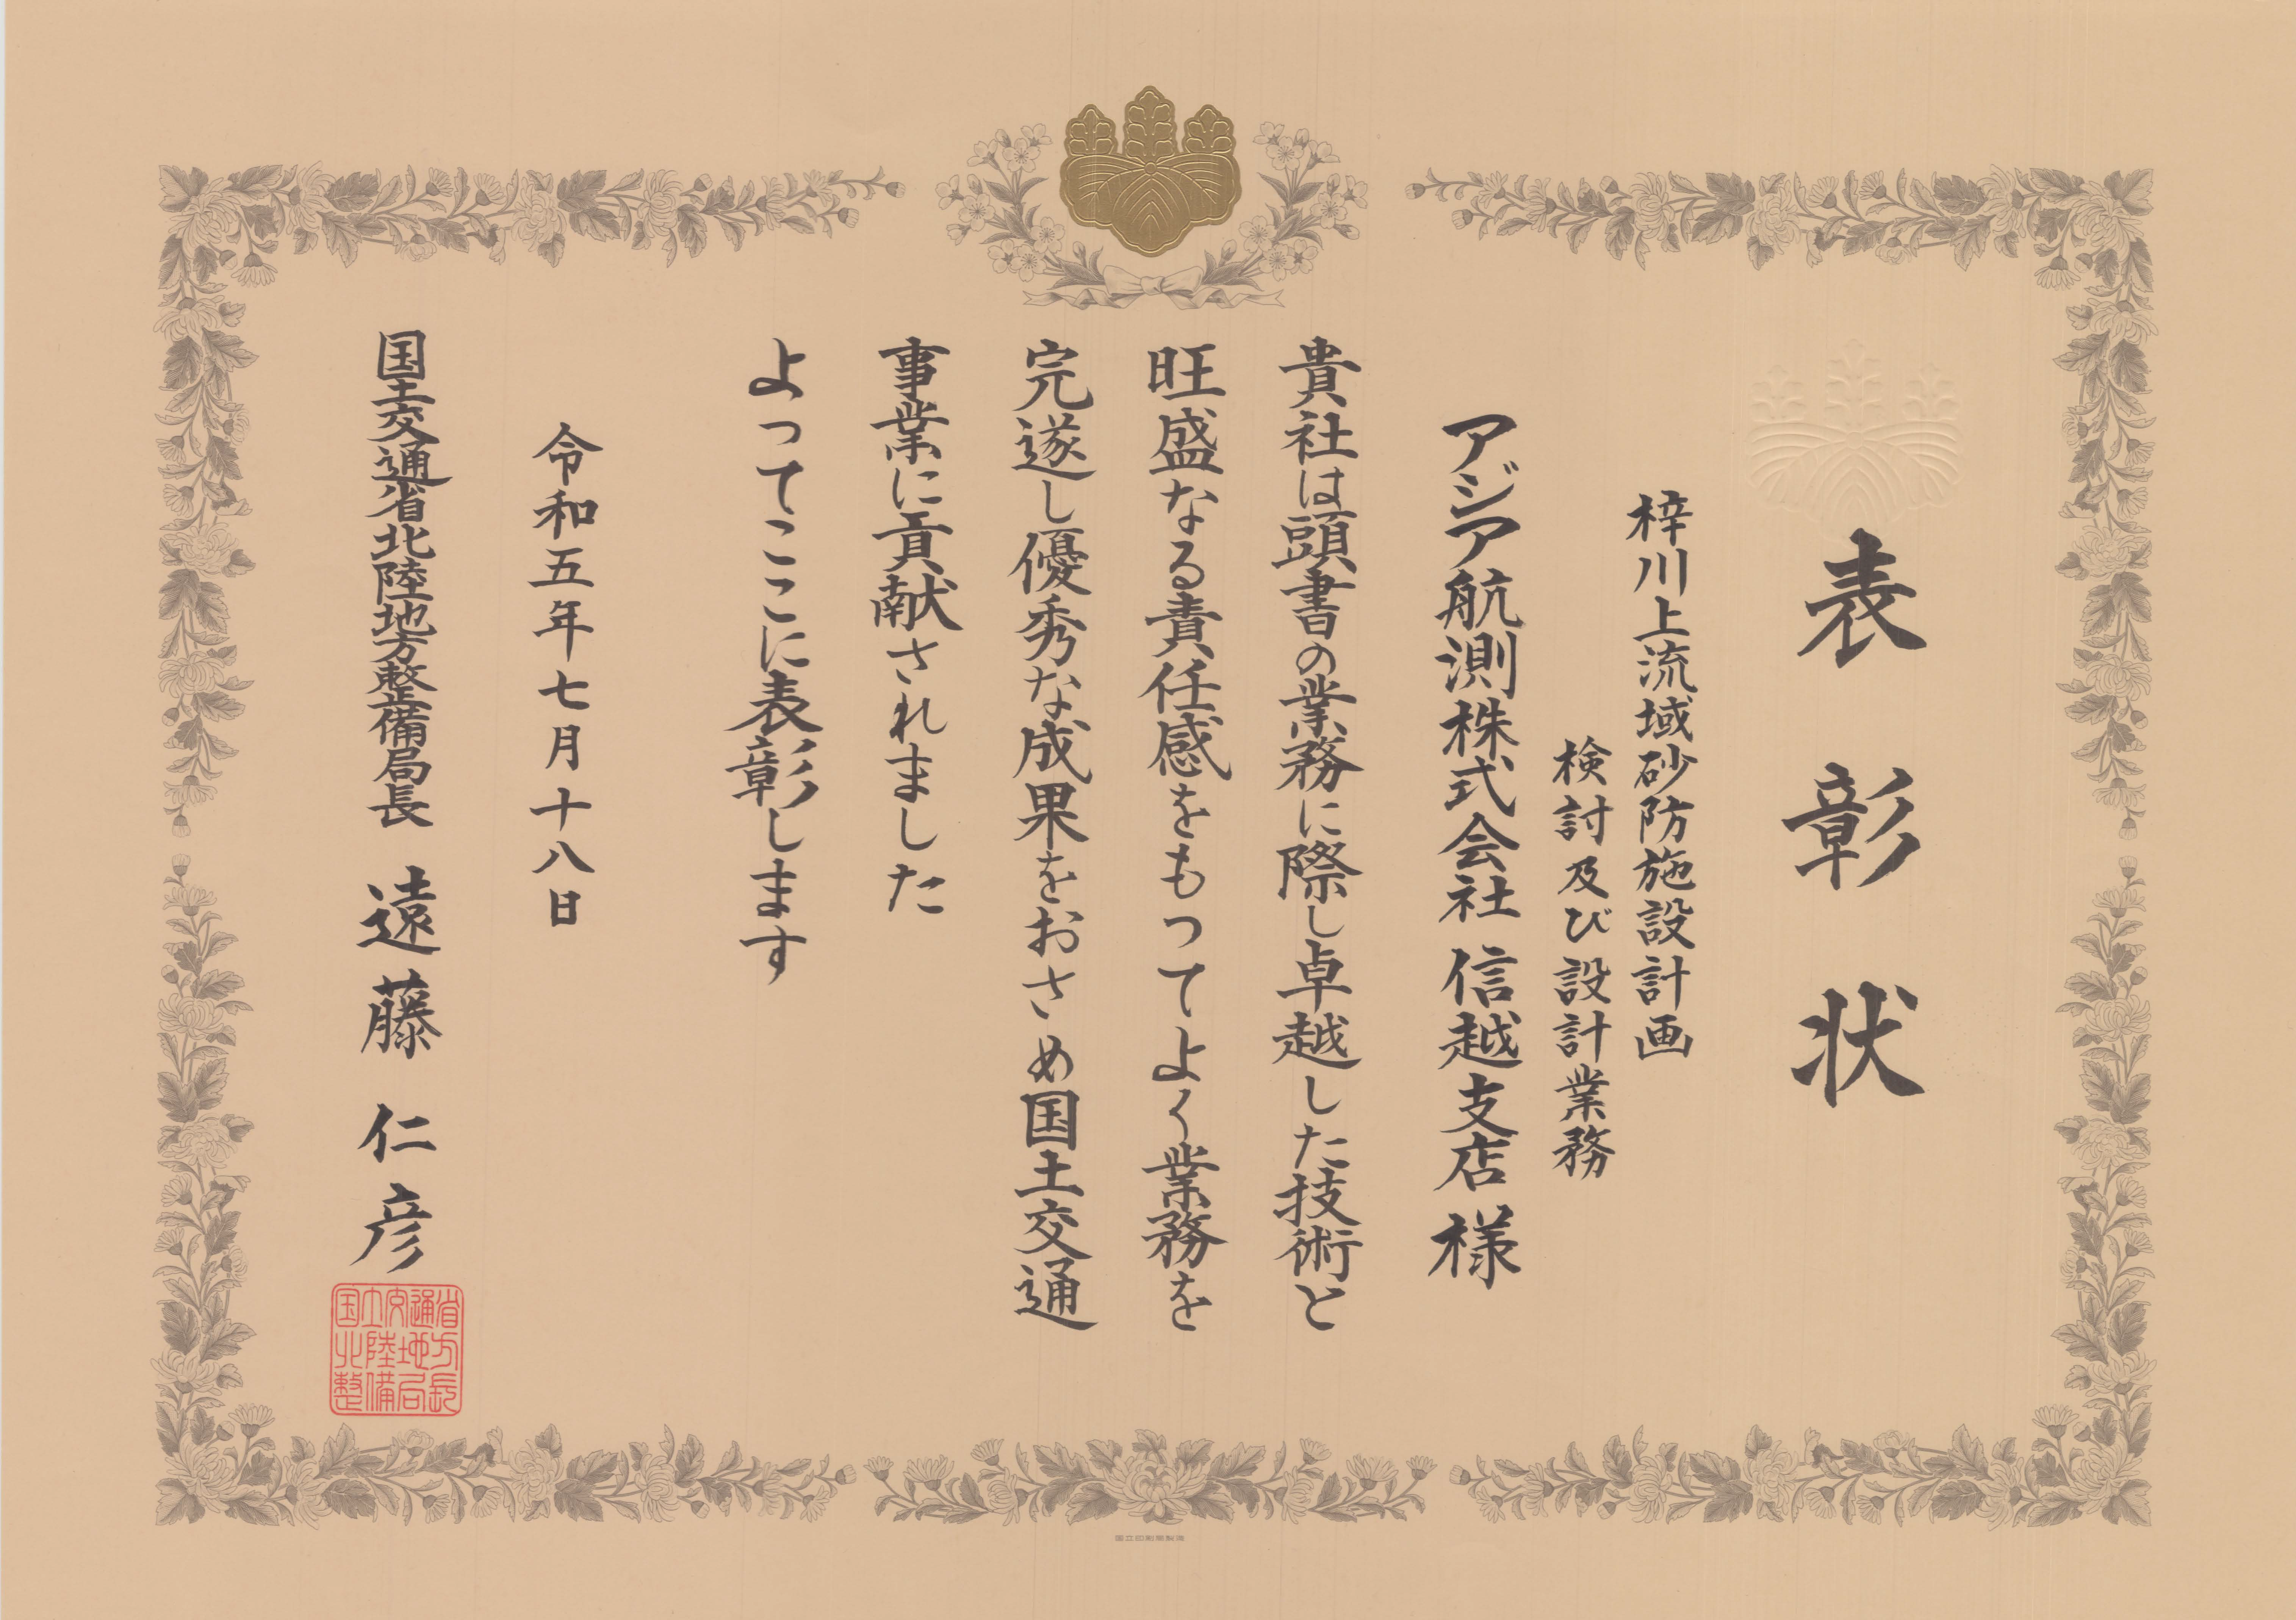 表彰状
梓川上流域砂防施設計画
検討及び設計業務
アジア航測株式会社 信越支店 様
貴社は頭書の業務に際し卓越した技術と
旺盛なる責任感をもつてよく業務を
完遂し優秀な成果をおさめ国土交通
事業に貢献されました
よつてここに表彰します
令和五年七月十八日
国土交通省北陸地方整備局長 遠藤仁彦
国土交通省
北陸地方
整備局長
国立印刷局製造